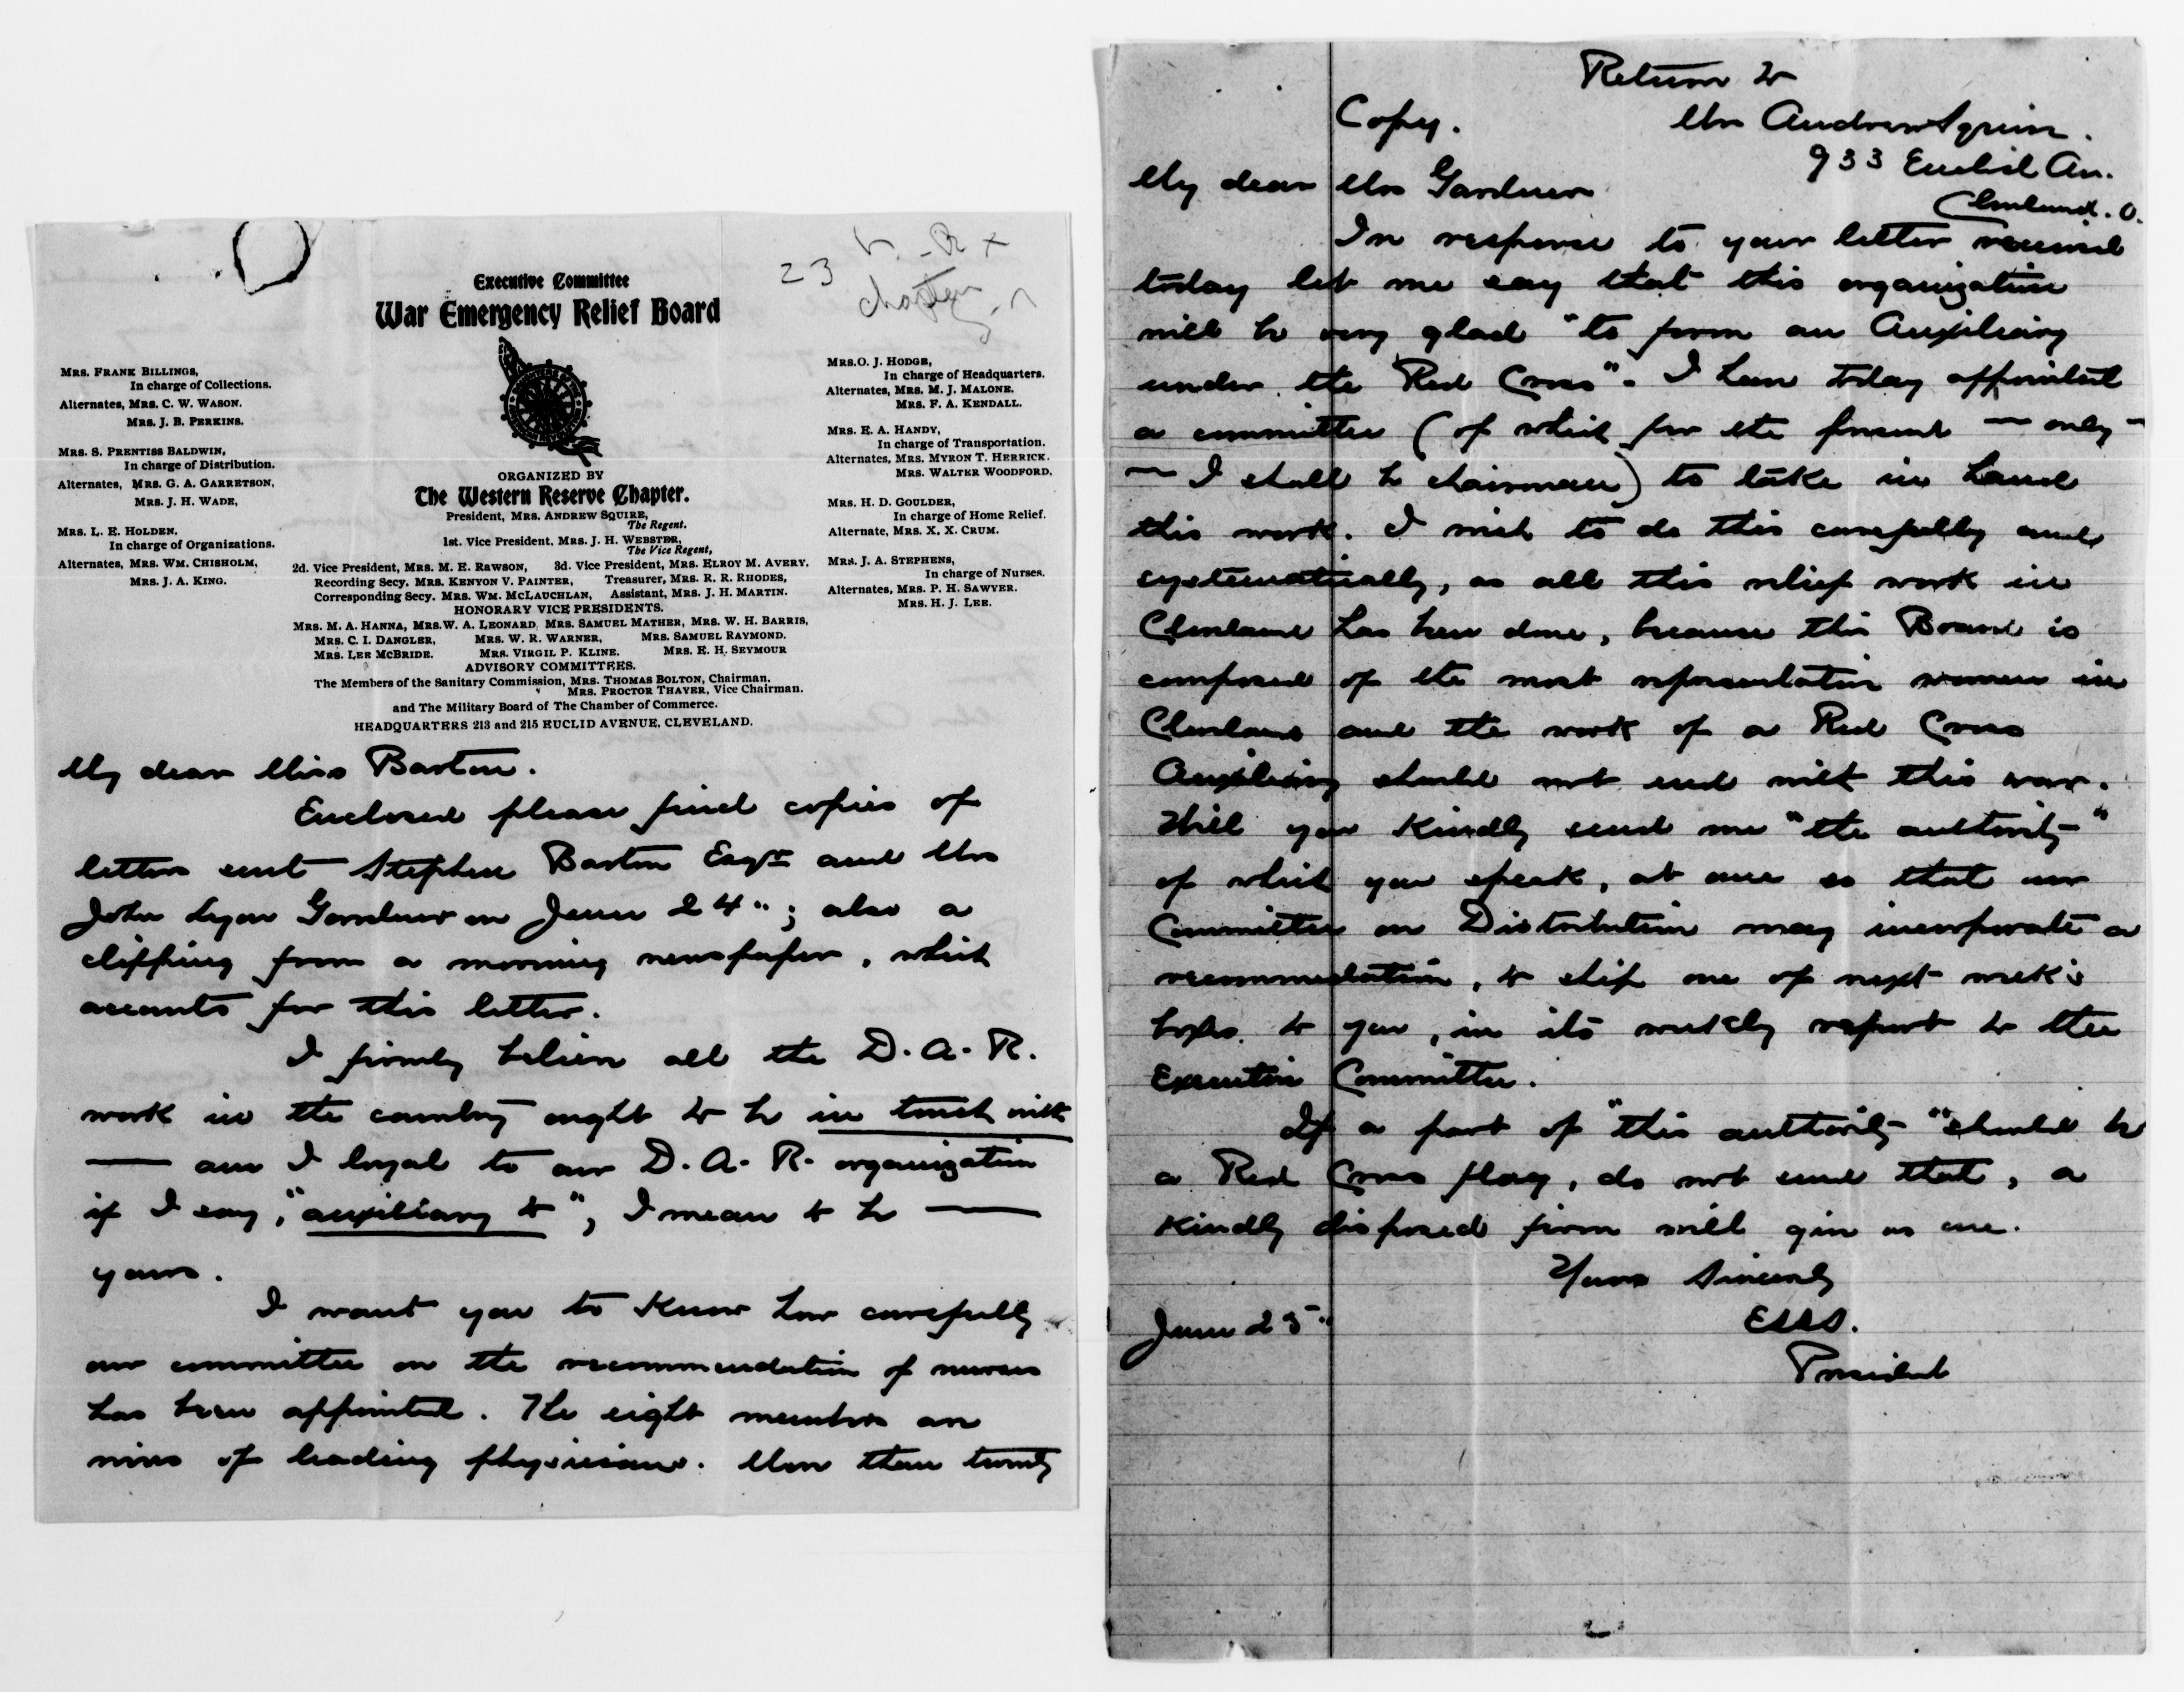 23
Executive Committee
War Emergency Relief Board
ORGANIZED BY
The Western Reserve Chapter.
President, MRS. ANDREW SQUIRE,
The Regent.
1st. Vice President, MRS. J. H. WEBSTER,
The Vice Regent,
2d. Vice President, MRS. M. E. RAWSON, 3d. Vice President, MRS. ELROY M. AVERY.
Recording Secy, MRS. KENYON V. PAINTER, Treasurer, MRS. R. R. RHODES,
Corresponding Secy, MRS. WM. MCLAUCHLAN, Assistant, MRS. J. H. MARTIN.
HONORARY VICE PRESIDENTS.
MRS. M. A. HANNA, MRS. W. A. LEONARD, MRS. SAMUEL MATHER, MRS. W. H. BARRIS,
MRS. C. I. DANGLER, MRS. W. R. WARNER, MRS. SAMUEL RAYMOND.
MRS. LEE MCBRIDE. MRS. VIRGIL P. KLINE. MRS. E. H. SEYMOUR
ADVISORY COMMITTEES.
The Members of the Sanitary Commission, MRS. THOMAS BOLTON, Chairman.
MRS. PROCTOR THAYER, Vice Chairman.
and The Military Board of The Chamber of Commerce.
HEADQUARTERS 213 and 215 EUCLID AVENUE, CLEVELAND.
MRS. FRANK BILLINGS,
In charge of Collections.
Alternates, MRS. C. W. WASON.
MRS. J. B. PERKINS.
MRS. S. PRENTISS BALDWIN,
In charge of Distribution.
Alternates, MRS. G. A. GARRETSON,
MRS. J. H. WADE,
MRS. L. E. HOLDEN,
In charge of Organizations.
Alternates, MRS. WM. CHISHOLM,
MRS. J. A. KING.
MRS. O. J. HODGE,
In charge of Headquarters.
Alternates, MRS. M. J. MALONE.
MRS. F. A. KENDALL.
MRS. E. A. HANDY,
In charge of Transportation.
Alternates, MRS. MYRON T. HERRICK.
MRS. WALTER WOODFORD,
MRS. H. D. GOULDER,
In charge of Home Relief.
Alternate, MRS. X. X. CRUM.
MRS. J. A. STEPHENS,
In charge of Nurses.
Alternates, MRS. P. H. SAWYER.
MRS. H. J. LEE.
My dear Miss Barton.
Enclosed please find copies of
letters sent Stephen Barton Esqre and Mrs
John Lyon Gardner on June 24"; also a
clipping from a morning newspaper, which
accounts for this letter.
I firmly believe all the D. A. R.
work in the country ought to be in touch with
— am I loyal to our D. A. R. organization
if I say, "auxiliary to", I mean to be —
yours.
I want you to know how carefully
our committee on the recommendation of nurses
has been appointed. The eight members are
wives of leading physicians. More than twenty
Return to
Copy. Mrs Andrew Squire.
933 Euclid Av.
Cleveland. O.
My dear Mrs Gardner
In response to your letter received
today let me say that this organization
will be very glad "to form an Auxiliary
under the Red Cross". I have today appointed
a committee (of which for the present — only —
— I shall be chairman) to take in hand
this work. I wish to do this carefully and
systematically, as all this relief work in
Cleveland has been done, because this Board is
composed of the most representative women in
Cleveland and the work of a Red Cross
Auxiliary should not end with this war.
Will you kindly send me "the authority"
of which you speak, at once so that our
Committee on Distribution may incorporate a
recommendation, to ship one of next week's
boxes to you, in its weekly report to the
Executive Committee.
If a part of "this authority" should be
a Red Cross flag, do not send that, a
kindly disposed firm will give us one.
Yours Sincerely
June 25" E S S S.
President